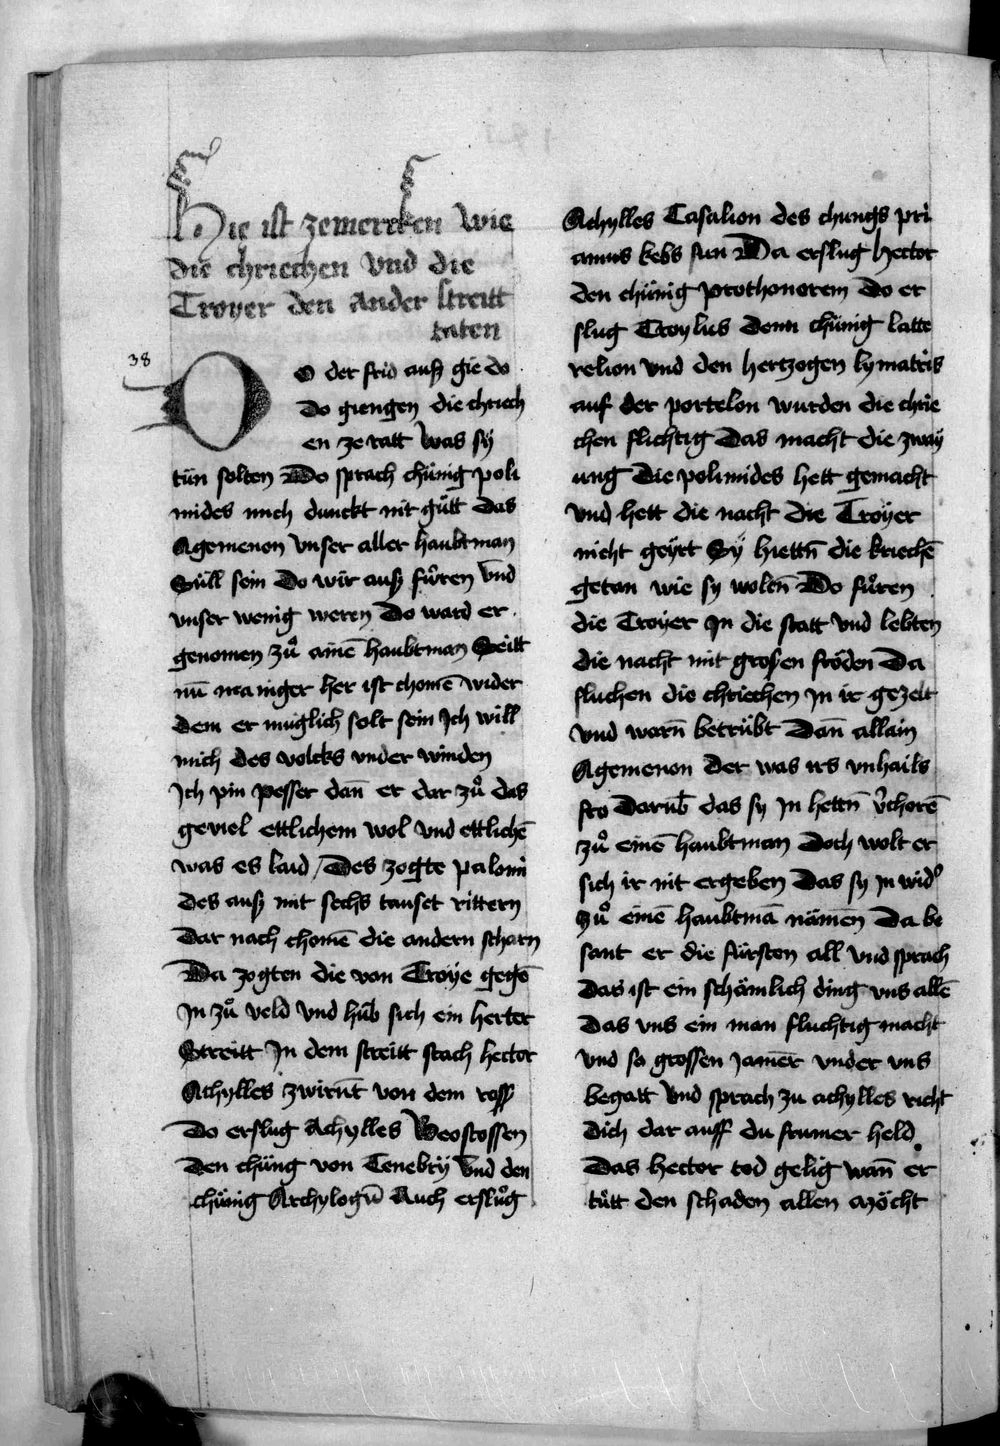 Hie ist zemercken wie
die chriechen vnd die
Troyer den ander streitt
taten
38
Do der frid ausz gie do
do giengen die chriech
en ze ratt was sÿ
tün solten Do sprach chünig poli
mides mich dunckt nit gůtt das
Agemenon vnser aller haubtman
Süll sein Do wir ausz fůren vnd
vnser wenig weren Do ward er
genomen zů ainē haubtman Seitt
nū maniger her ist chomē wider
dem er müglich solt sein Ich will
mich des volcks vnder winden
Ich pin pesser dañ er dar zů das
geviel ettlichem wol vnd ettlichē
was es laid / Des zogte palomi
des ausz mit sechs tauset rittern
Dar nach chomē die andern scharn
Da zogten die von Troÿe gegē
In zů veld vnd hůb sich ein herter
Streitt In dem streitt stach hector
Achylles zwirñt von dem ross
Do erslug Achylles Beostossen
den chüng von Tenebrÿ vnd den
chünig Archylogū Auch erslůg
Achylles Casalion des chungs pri
amus kebs sun Da erslug hector
den chünig prothonorem Do er
slug Troylus denn chünig latte
relion vnd den hertzogen lymatris
auf der portelon wurden die chrie
chen fluchtig Das macht die zway
ung die polimides hett gemacht
vnd hett die nacht die Troÿer
nicht geÿrt Sÿ hiettñ die kriechē
getan wie sy wolēñ Do fůren
die Troÿer In die statt vnd lebten
die nacht mit grosen fröden Da
fluchen die chriechen In ir gezelt
vnd warñ betrübt Dañ allain
Agemenon der was irs vnhails
fro Darūb das sy In hettñ v̄chorē
zů einē haubtman Doch wolt er
sich ir nit ergeben Das sy In wid'
zů einē haubtmā nämen Da be
sant er die fürsten all vnd sprach
Das ist ein schämlich ding vns allē
Das vns ein man fluchtig macht
vnd so grossen Jamer vnder vns
begatt vnd sprach zu achylles richt
dich dar auff du frumer held
Das hector tod gelig wañ er
tůtt den schaden allen möcht